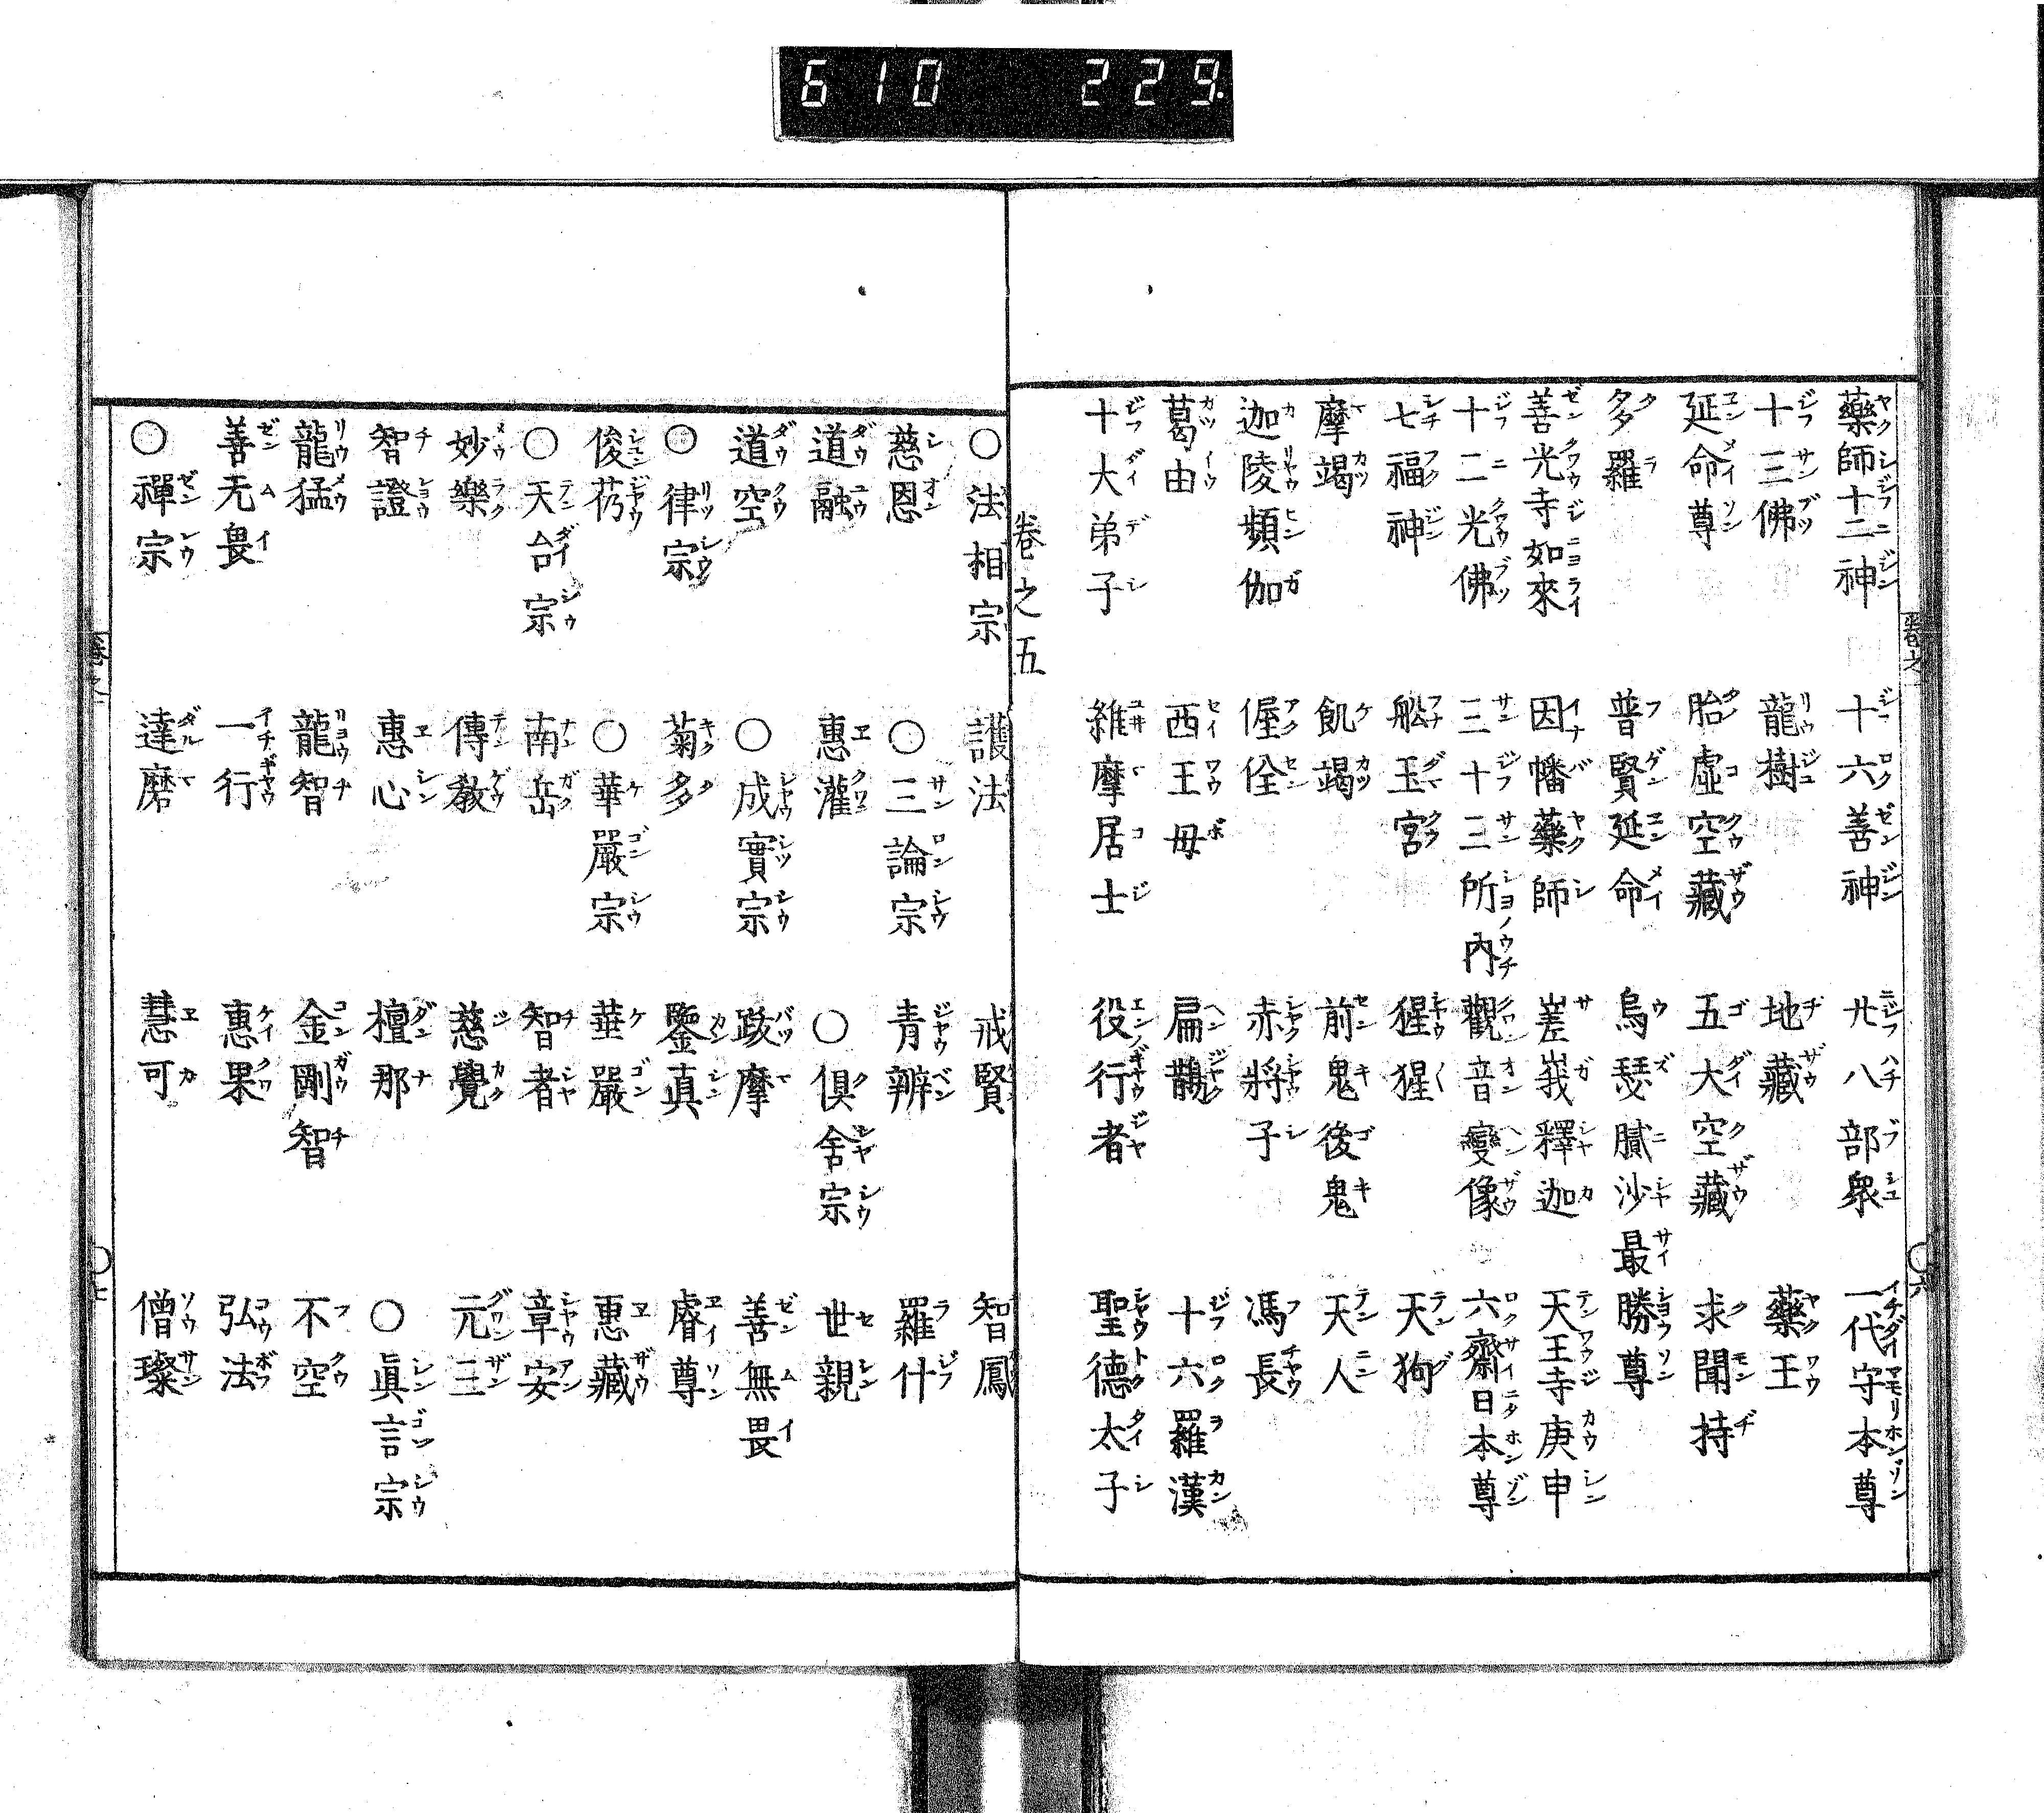 610 229.
藥師十二神 十六善神 廿八部衆 一代守本尊
十三佛 龍樹 地藏 藥王
延命尊 胎虛空藏 五大空藏 求聞持
多羅 普賢延命 烏瑟膩沙最勝尊
善光寺如來 因幡藥師 嵳峩釋迦 天王寺庚申
十二光佛 三十三所內 觀音變像 六齋日本尊
七福神 舩玉宮 猩猩 天狗
摩竭 飢竭 前鬼後鬼 天人
迦陵頻伽 偓佺 赤將子 馮長
葛由 西王母 扁鵲 十六羅漢
十大弟子 維摩居士 役行者 聖德太子
卷之五
〇法相宗 護法 戒賢 智鳳
慈恩 〇三論宗 青辨 羅什
道融 惠灌 〇俱舍宗 世親
道空 〇成實宗 跋摩 善無畏
〇律宗 菊多 鑒真 睿尊
俊芿 〇華嚴宗 華嚴 惠藏
〇天台宗 南岳 智者 章安
妙樂 傳教 慈覺 元三
智證 惠心 檀那 〇眞言宗
龍猛 龍智 金剛智 不空
善无畏 一行 惠果 弘法
〇禪宗 達磨 慧可 僧璨